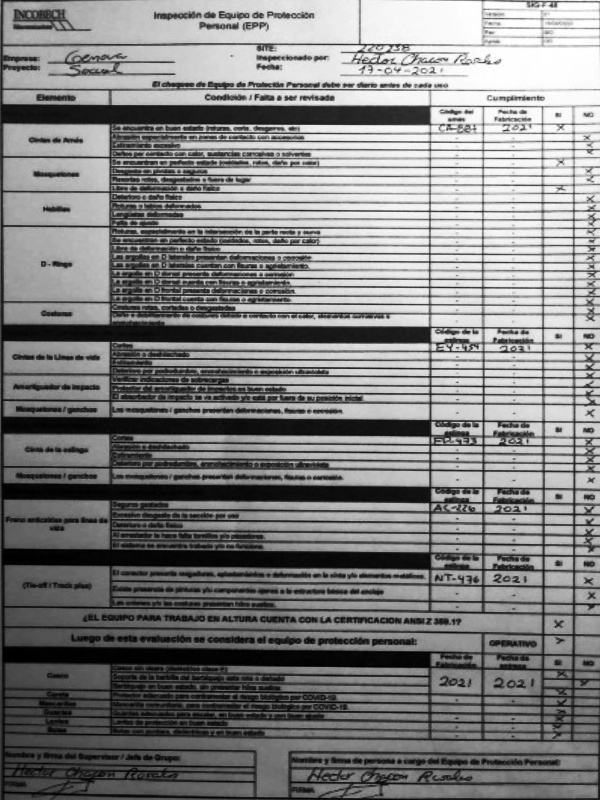 INCOBECH
Inspección de Equipo de Protección
Personal (EPP)
SIG-F-48
Empresa: Genova
Proyecto: Social
SITE: 220238
Inspeccionado por: Hector Chacon Rosales
Fecha: 17-04-2021
El chequeo de Equipo de Protección Personal debe ser diario antes de cada uso
Elemento Condición / Falta a ser revisada Cumplimiento
Código del arnés Fecha de Fabricación SI NO
Cintas de Arnés
Se encuentra en buen estado (roturas, corte, desgarros, etc) CA-887 2021 X
Abrasión especialmente en zonas de contacto con accesorios - - X
Estiramiento excesivo - - X
Daños por contacto con calor, sustancias corrosivas o solventes - - X
Mosquetones
Se encuentran en perfecto estado (oxidados, rotos, daño por calor) - - X
Desgaste en pivotes o seguros - - X
Resortes rotos, desgastados o fuera de lugar - - X
Libre de deformación o daño físico - - X
Hebillas
Deterioro o daño físico - - X
Roturas o tablos deformados - - X
Lengüetas deformadas - - X
Falta de ajuste - - X
D - Rings
Roturas, especialmente en la intersección de la parte recta y curva - - X
Se encuentran en perfecto estado (oxidados, rotos, daño por calor) - - X
Libre de deformación o daño físico - - X
Las argollas en D laterales presentan deformaciones o corrosión - - X
Las argollas en D laterales cuentan con fisuras o agrietamiento. - - X
La argolla en D dorsal presenta deformaciones o corrosión - - X
La argolla en D dorsal cuenta con fisuras o agrietamiento. - - X
La argolla en D frontal presenta deformaciones o corrosión. - - X
La argolla en D frontal cuenta con fisuras o agrietamiento. - - X
Costuras
Costuras rotas, cortadas o desgastadas - - X
Daño o debilitamiento de costuras debido a contacto con el calor, elementos corrosivos o - - X
Código de la eslinga Fecha de Fabricación SI NO
Cintas de la Línea de vida
Cortes EY-454 2021 X
Abrasión o deshilachado - - X
Estiramiento - - X
Deterioro por podredumbre, enmohecimiento o exposición ultravioleta - - X
Amortiguador de impacto
Verificar indicaciones de sobrecargas - - X
Protector del amortiguador de impactos en buen estado - - X
El absorbedor de impacto se va activado y/o está por fuera de su posición inicial. - - X
Mosquetones / ganchos
Los mosquetones / ganchos presentan deformaciones, fisuras o corrosión. - - X
Código de la eslinga Fecha de Fabricación SI NO
Cinta de la eslinga
Cortes 2021 X
Abrasión o deshilachado - - X
Estiramiento - - X
Deterioro por podredumbre, enmohecimiento o exposición ultravioleta - - X
Mosquetones / ganchos
Los mosquetones / ganchos presentan deformaciones, fisuras o corrosión. - - X
Código de la eslinga Fecha de Fabricación SI NO
Freno anticaídas para línea de vida
Seguros gastados AC-226 2021 X
Excesivo desgaste de la sección por uso - - X
Deterioro o daño físico - - X
Al arrestador le hace falta tornillos y/o pasadores. - - X
El sistema se encuentra trabado y/o no funciona. - - X
Código de la eslinga Fecha de Fabricación SI NO
(Tie-off / Track plus)
El conector presenta rasgaduras, aplastamientos o deformación en la cinta y/o elementos metálicos. NT-476 2021 X
Existe presencia de pinturas y/o componentes ajenos a la estructura básica del anclaje - - X
Las uniones y/o las costuras presentan hilos sueltos. - - X
¿EL EQUIPO PARA TRABAJO EN ALTURA CUENTA CON LA CERTIFICACION ANSI Z 359.1? X
Luego de esta evaluación se considera el equipo de protección personal: OPERATIVO X
Fecha de Fabricación Fecha de entrega SI NO
Casco
Casco sin visera (dieléctrico clase E) 2021 2021 X
Soporte de la barbilla del barbiquejo esta rota o dañado X
Barbiquejo en buen estado, sin presentar hilos sueltos. X
Careta
Protector adecuado para contrarrestar el riesgo biológico por COVID-19. - - X
Mascarillas
Mascarilla comunitaria, para contrarrestar el riesgo biológico por COVID-19. - - X
Guantes
Guantes adecuados para escalar, en buen estado y con buen ajuste - - X
Lentes
Lentes de protección en buen estado - - X
Botas
Botas con puntera, dieléctricas y en buen estado - - X
Nombre y firma del Supervisor / Jefe de Grupo:
Hector Chacon Rosales
FIRMA
Nombre y firma de persona a cargo del Equipo de Protección Personal:
Hector Chacon Rosales
FIRMA